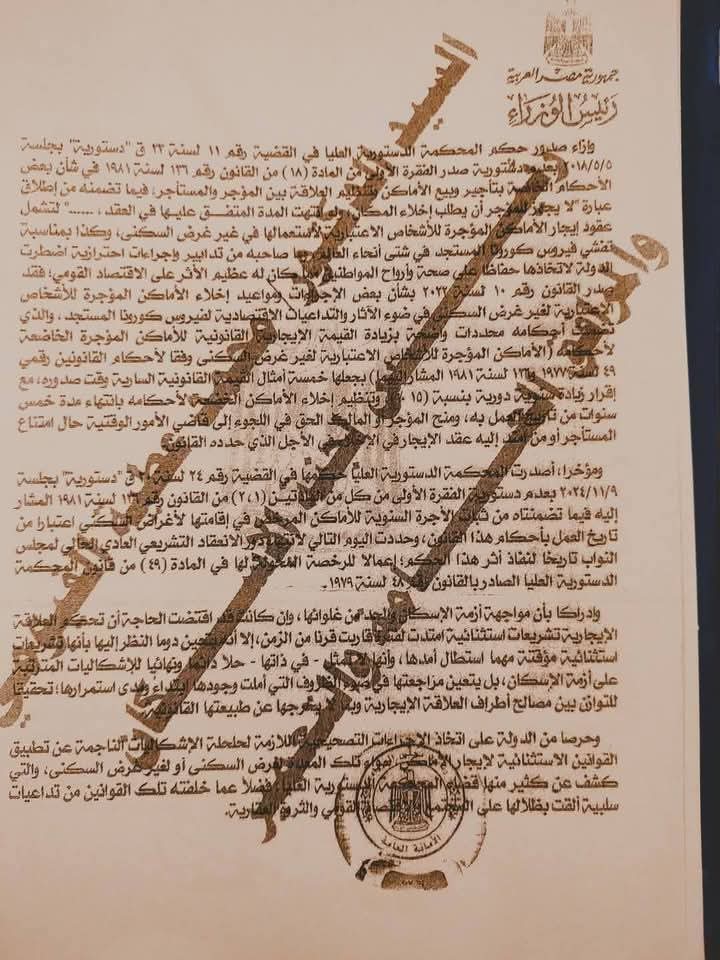 جمهورية مصر العربية
رئيس الوزراء
وإزاء صدور حكم المحكمة الدستورية العليا في القضية رقم ١١ لسنة ٢٣ ق "دستورية" بجلسة
٢٠١٨/٥/٥ بعدم دستورية صدر الفقرة الأولى من المادة (١٨) من القانون رقم ١٣٦ لسنة ١٩٨١ في شأن بعض
الأحكام الخاصة بتأجير وبيع الأماكن وتنظيم العلاقة بين المؤجر والمستأجر؛ فيما تضمنه من إطلاق
عبارة "لا يجوز للمؤجر أن يطلب إخلاء المكان، ولو انتهت المدة المتفق عليها في العقد، ......" لتشمل
عقود إيجار الأماكن المؤجرة للأشخاص الاعتبارية لاستعمالها في غير غرض السكنى، وكذا بمناسبة
تفشي فيروس كورونا المستجد في شتى أنحاء العالم، وما صاحبه من تدابير وإجراءات احترازية اضطرت
الدولة لاتخاذها حفاظا على صحة وأرواح المواطنين، وما كان له عظيم الأثر على الاقتصاد القومي؛ فقد
صدر القانون رقم ١٠ لسنة ٢٠٢٢ بشأن بعض الإجراءات ومواعيد إخلاء الأماكن المؤجرة للأشخاص
الاعتبارية لغير غرض السكنى في ضوء الآثار والتداعيات الاقتصادية لفيروس كورونا المستجد، والذي
أحكامه محددات واضحة بزيادة القيمة الإيجارية القانونية للأماكن المؤجرة الخاضعة
لأحكامه (الأماكن المؤجرة للأشخاص الاعتبارية لغير غرض السكنى وفقا لأحكام القانونين رقمي
٤٩ لسنة ١٩٧٧ و١٣٦ لسنة ١٩٨١ المشار إليهما) بجعلها خمسة أمثال القيمة القانونية السارية وقت صدوره، مع
إقرار زيادة سنوية دورية بنسبة (١٥٪) وتنظيم إخلاء الأماكن الخاضعة لأحكامه بانتهاء مدة خمس
سنوات من تاريخ العمل به، ومنح المؤجر أو المالك الحق في اللجوء إلى قاضي الأمور الوقتية حال امتناع
المستأجر أو من امتد إليه عقد الإيجار في الإخلاء في الأجل الذي حدده القانون.
ومؤخرا؛ أصدرت المحكمة الدستورية العليا حكمها في القضية رقم ٢٤ لسنة ٢٠ ق "دستورية" بجلسة
٢٠٢٤/١١/٩ بعدم دستورية الفقرة الأولى من كل من المادتين (٢،١) من القانون رقم ١٣٦ لسنة ١٩٨١ المشار
إليه فيما تضمنتاه من ثبات الأجرة السنوية للأماكن المرخص في إقامتها لأغراض السكنى اعتبارا من
تاريخ العمل بأحكام هذا القانون، وحددت اليوم التالي لانتهاء دور الانعقاد التشريعي العادي الحالي لمجلس
النواب تاريخا لنفاذ أثر هذا الحكم؛ إعمالا للرخصة المخولة لها في المادة (٤٩) من قانون المحكمة
الدستورية العليا الصادر بالقانون رقم ٤٨ لسنة ١٩٧٩.
وإدراكا بأن مواجهة أزمة الإسكان والحد من غلوائها، وإن كانت قد اقتضت الحاجة أن تحكم العلاقة
الإيجارية تشريعات استثنائية امتدت لفترة قاربت قرنا من الزمن، إلا أنه يتعين دوما النظر إليها بأنها تشريعات
استثنائية مؤقتة مهما استطال أمدها، وأنها لا تمثل - في ذاتها - حلا دائما ونهائيا للإشكاليات المترتبة
على أزمة الإسكان، بل يتعين مراجعتها في ضوء الظروف التي أملت وجودها ابتداء ومدى استمرارها؛ تحقيقا
للتوازن بين مصالح أطراف العلاقة الإيجارية وبما لا يخرجها عن طبيعتها القانونية.
وحرصا من الدولة على اتخاذ الإجراءات التصحيحية اللازمة لحلحلة الإشكاليات الناجمة عن تطبيق
القوانين الاستثنائية لإيجار الأماكن سواء تلك المعدة لغرض السكنى أو لغير غرض السكنى، والتي
كشف عن كثير منها قضاء المحكمة الدستورية العليا، فضلا عما خلفته تلك القوانين من تداعيات
سلبية ألقت بظلالها على المجتمع والاقتصاد القومي والثروة العقارية.
الأمانة العامة